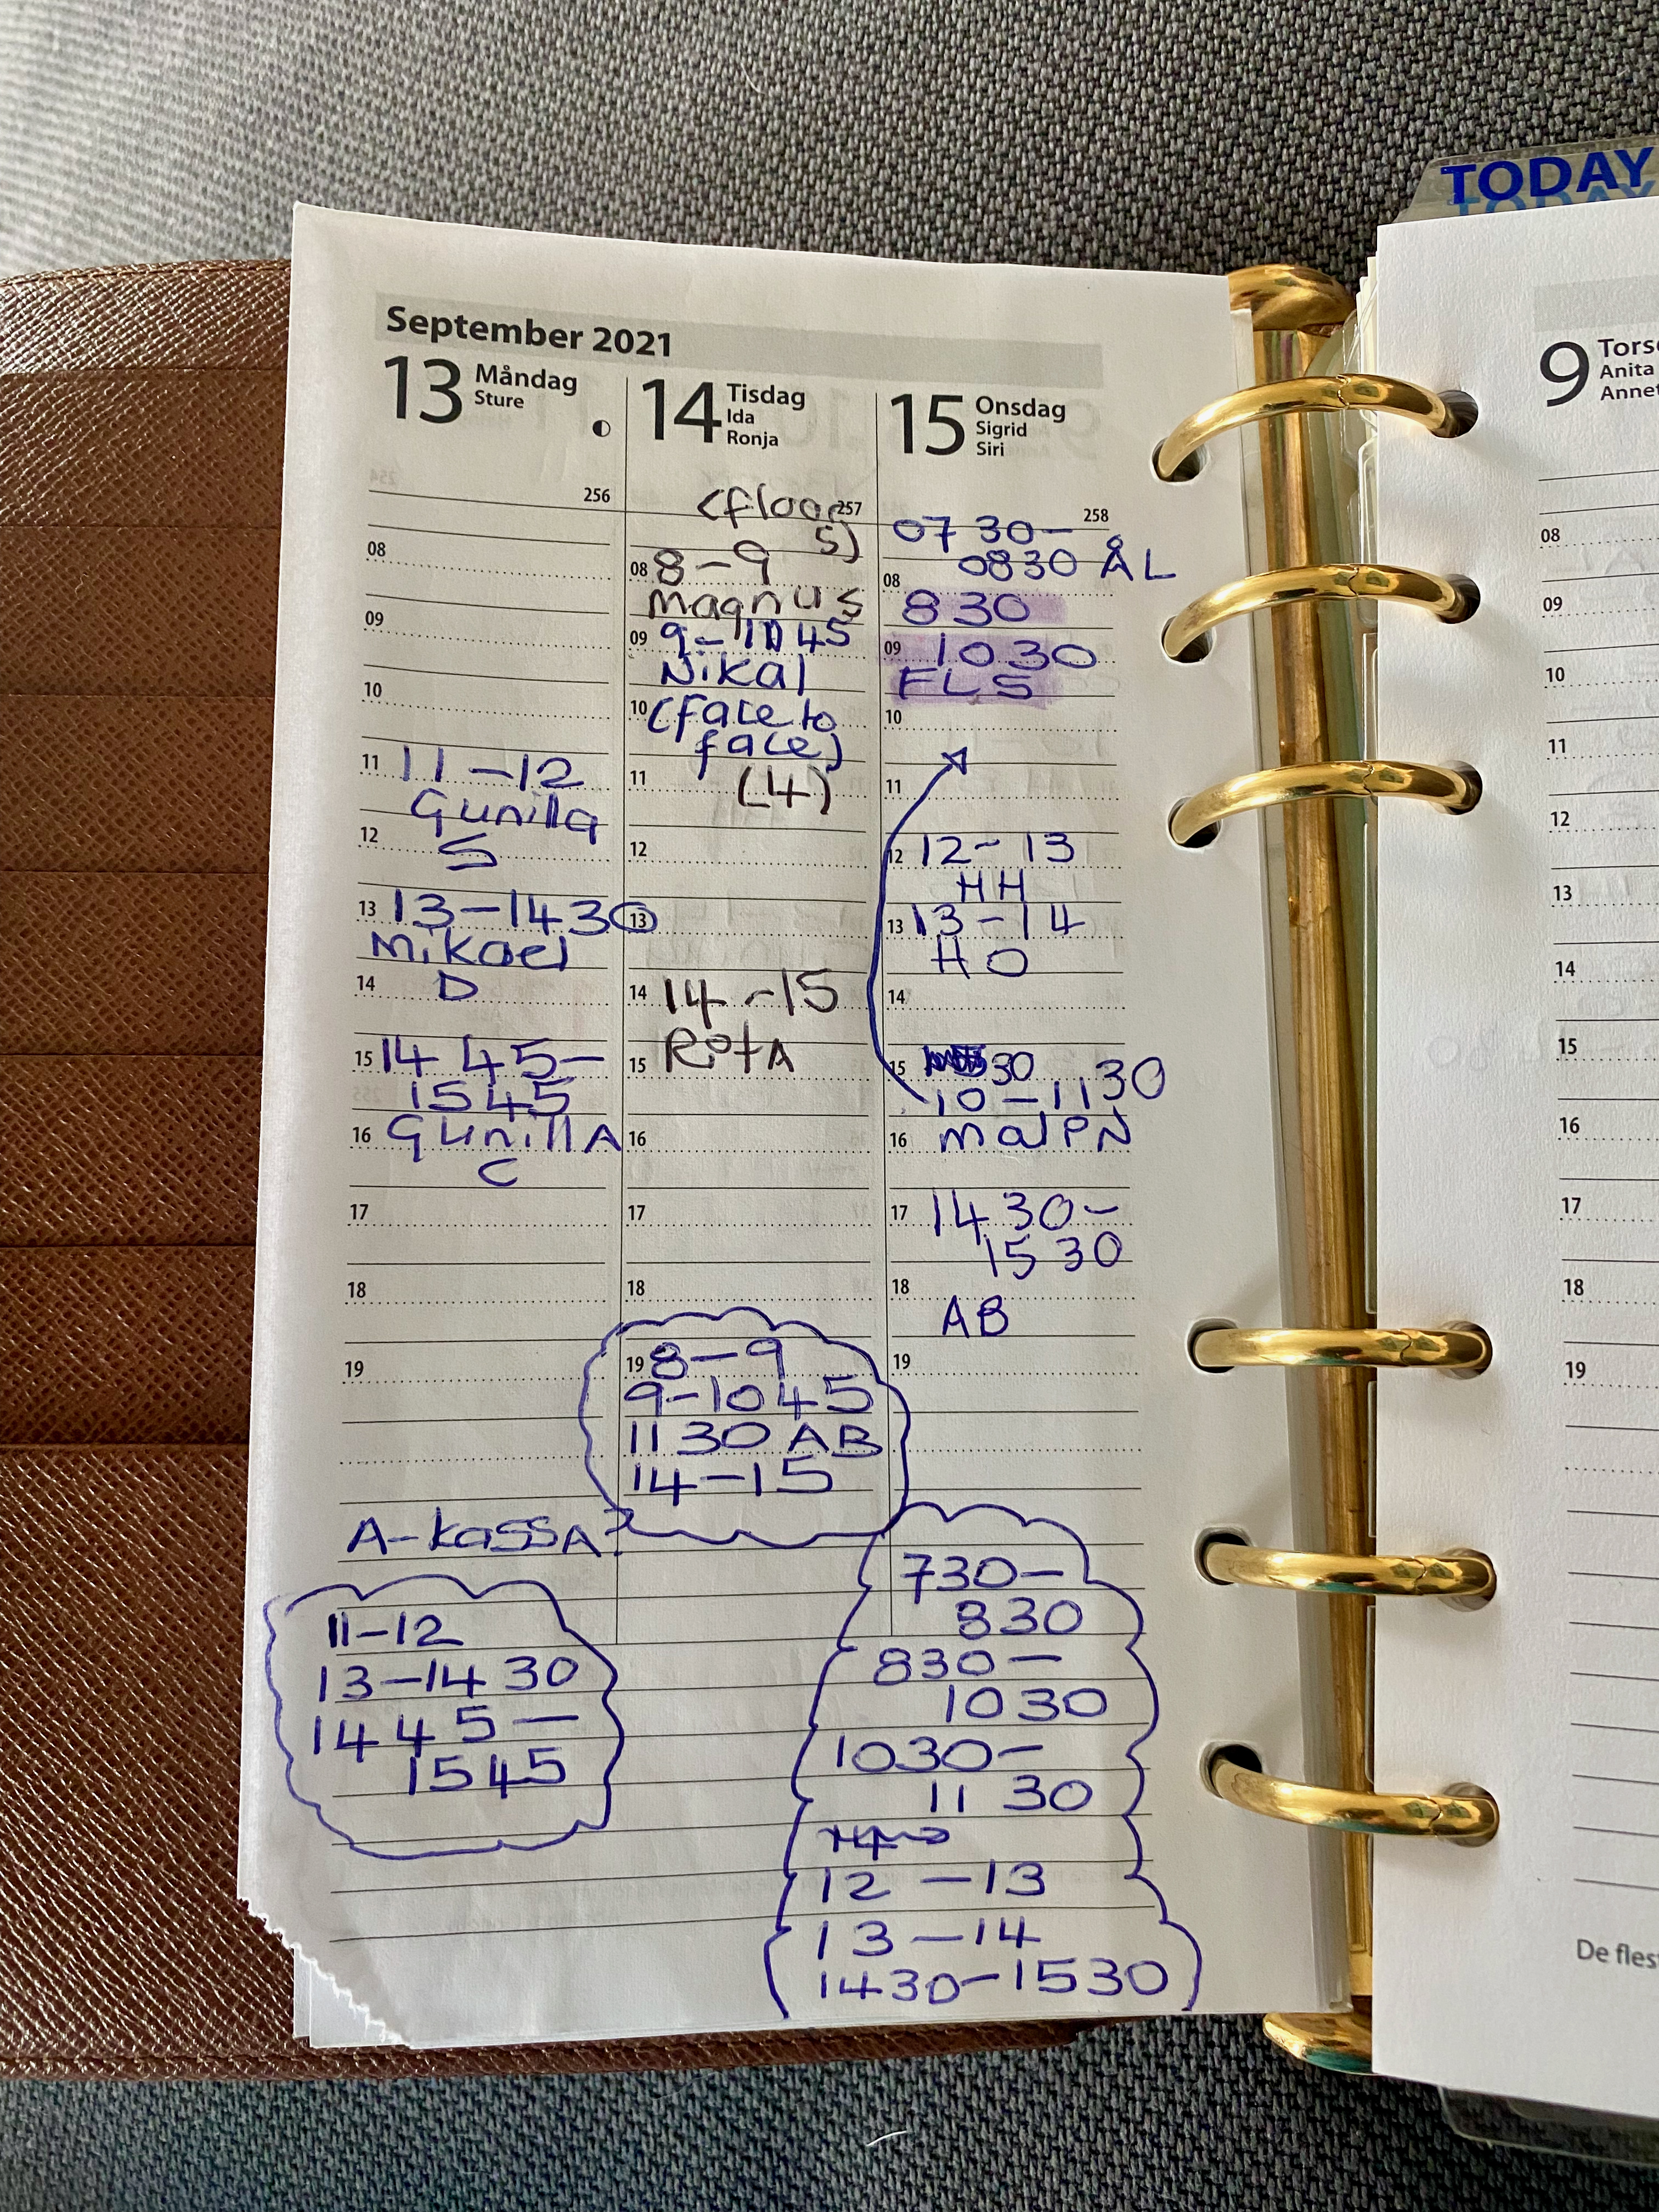 TODAY
September 2021
13 Måndag
Sture
256
08
09
10
11 11-12
Gunilla
12 S
13 13-1430
Mikael
14 D
15 14 45-
1545
16 GunillA
C
17
18
19
A-kassA?
11-12
13-14 30
14 4 5-
1545
14 Tisdag
Ida
Ronja
257
(floor
5)
08 8-9
Magnus
09 9-10 45
Nikal
10 (face to
face)
11 (4)
12
13
14 14-15
15 RotA
16
17
18
19 8-9
9-1045
1130 AB
14-15
15 Onsdag
Sigrid
Siri
258
07 30-
0830 ÅL
08
830
09 1030
FLS
10
11
12 12-13
HH
13 13-14
HO
14
15 30
10-1130
16 MalPN
17 14 30-
15 30
18
AB
19
730-
830
830-
1030
1030-
11 30
12-13
13-14
1430-1530
9 Tors
Anita
Annet
08
09
10
11
12
13
14
15
16
17
18
19
De fles